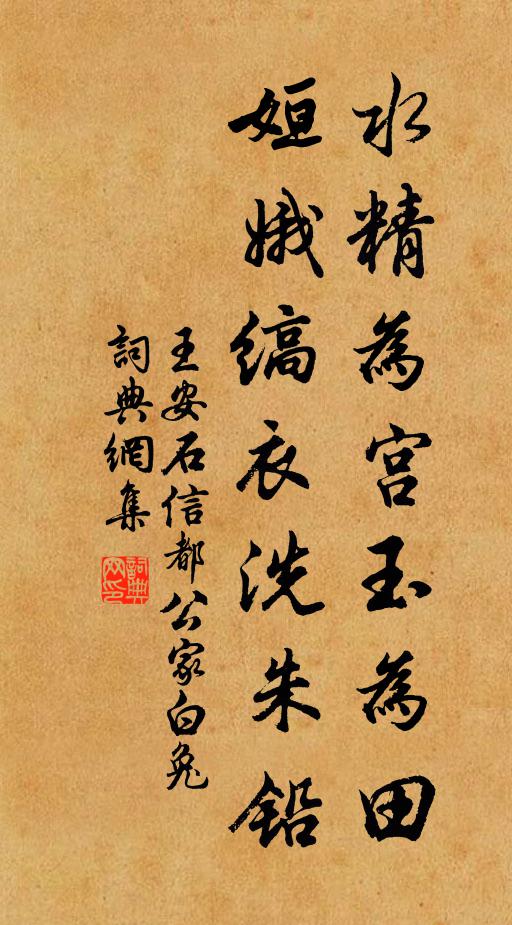 水精為宮玉為田
姮娥縞衣洗朱鉛
王安石信都公家白兔
詞典網集
詞典
网印